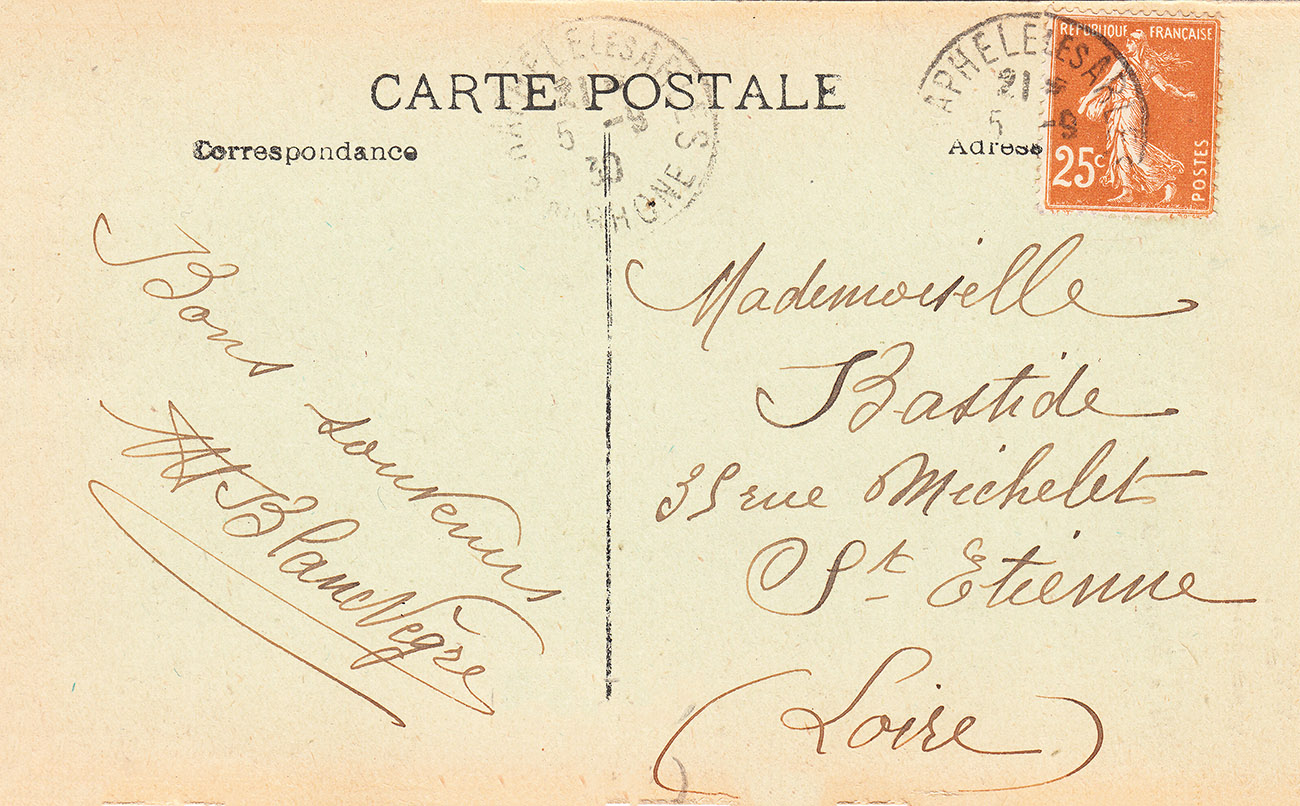 CARTE POSTALE
Correspondance
Adresse
RÉPUBLIQUE FRANÇAISE
25c
POSTES
APHELE LES ARL
21
5 -9
30
RHONE
APHELE LES ARL
21 *
5 -9
Bons souvenirs
Blanc Nègre
Mademoiselle
Bastide
35 rue Michelet
St. Etienne
(Loire)